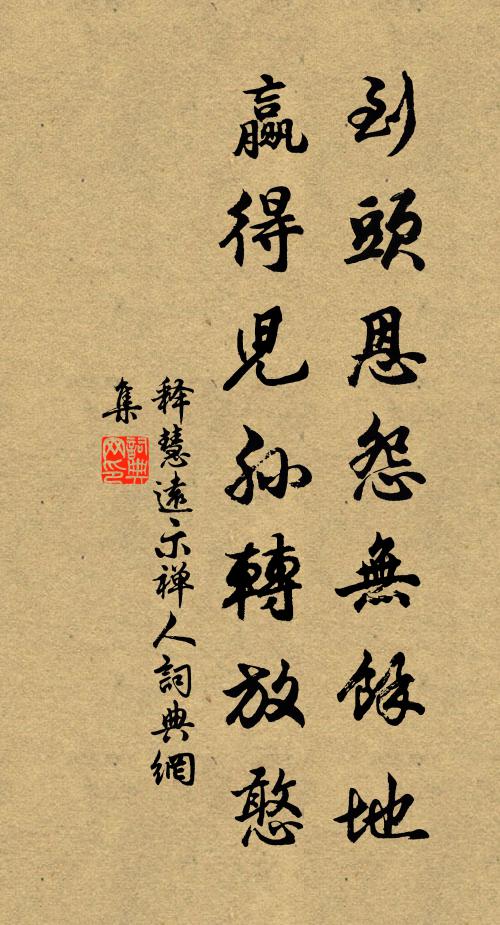 到頭恩怨無餘地
贏得兒孫轉放憨
释慧遠示禅人詞典網
集
詞典網印